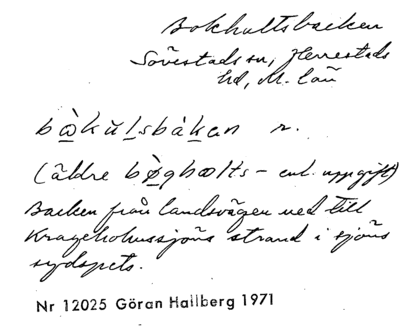 Bokhultsbacken
Sövestads sn, Herrestads
hd, M. län
bò̲kŭl̲sbák̲an r.
(äldre bø̲̀gholts – enl. uppgift)
Backen från landsvägen ned till
Krageholmssjöns strand i sjöns
sydspets.
Nr 12025 Göran Hallberg 1971